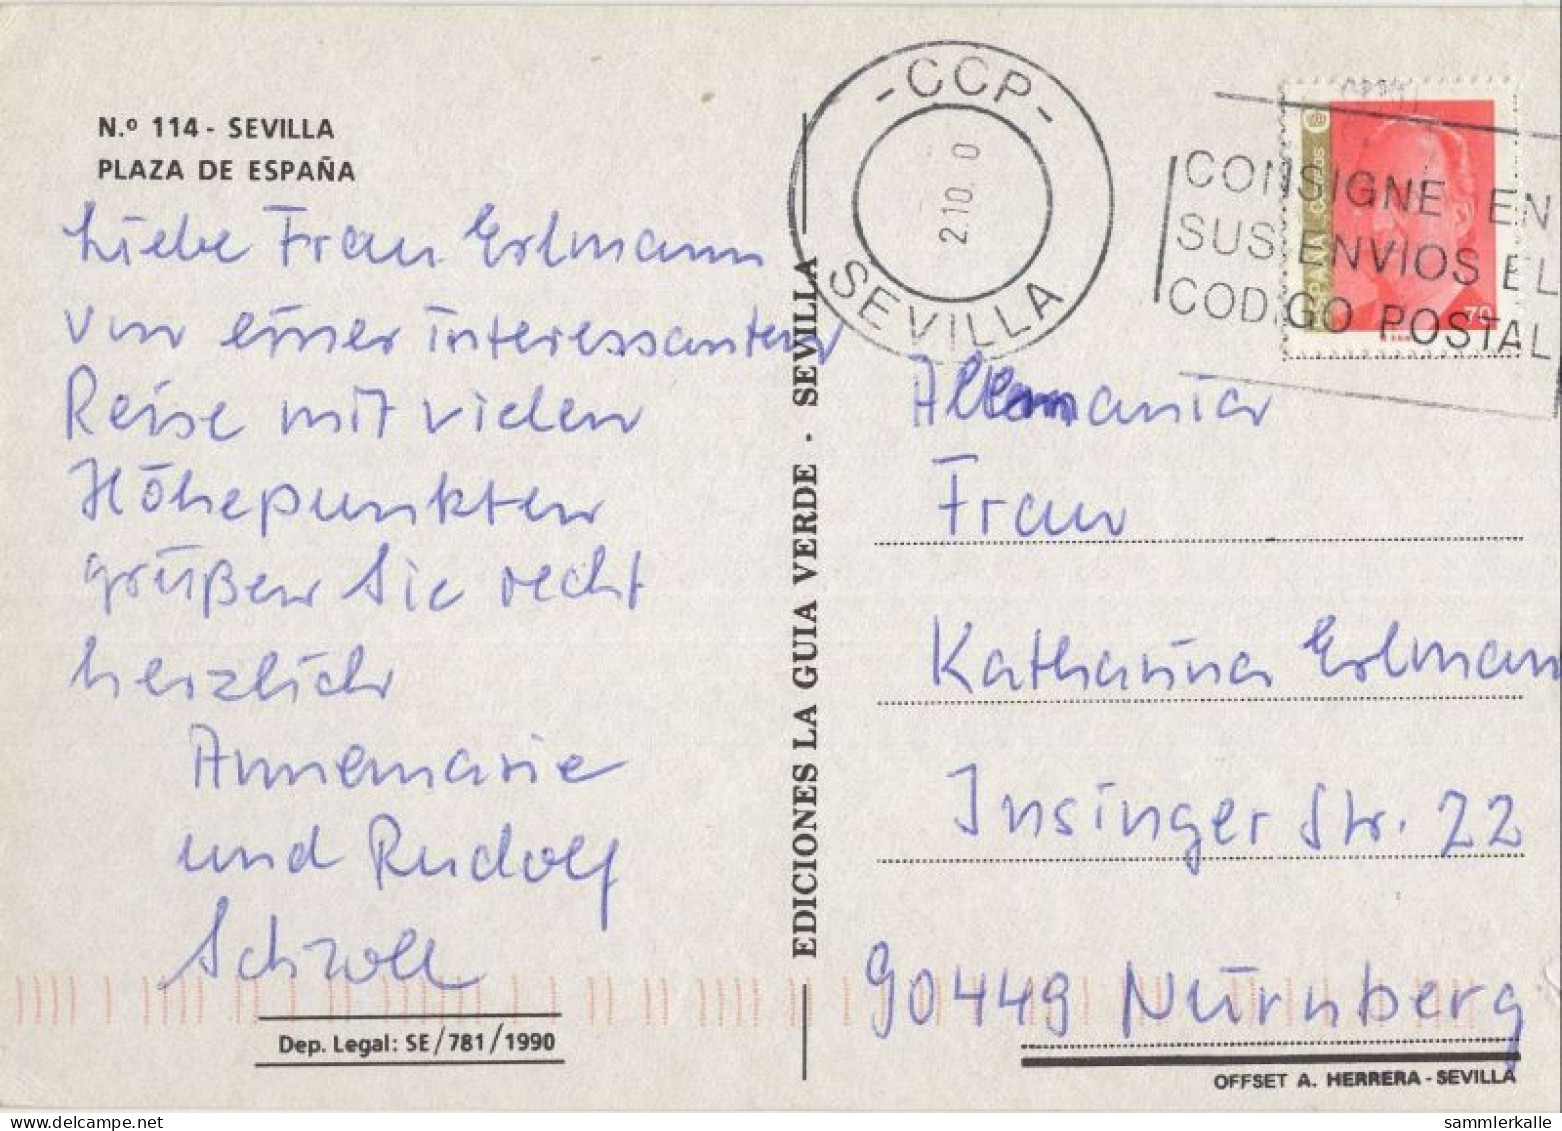 N.º 114 - SEVILLA
PLAZA DE ESPAÑA
Liebe Frau Erlmann
von einer interessanten
Reise mit vielen
Höhepunkten
grüßen Sie recht
herzlich
Annemarie
und Rudolf
Dep. Legal: SE/781/1990
EDICIONES LA GUIA VERDE - SEVILLA
-CCP-
2.10 0
SEVILLA
CONSIGNE EN
SUS ENVIOS EL
CODIGO POSTAL
ESPAÑA Correos
Allemania
Frau
Katharina Erlman
Insinger Str. 22
90449 Nürnberg
OFFSET A. HERRERA - SEVILLA
sammlerkalle